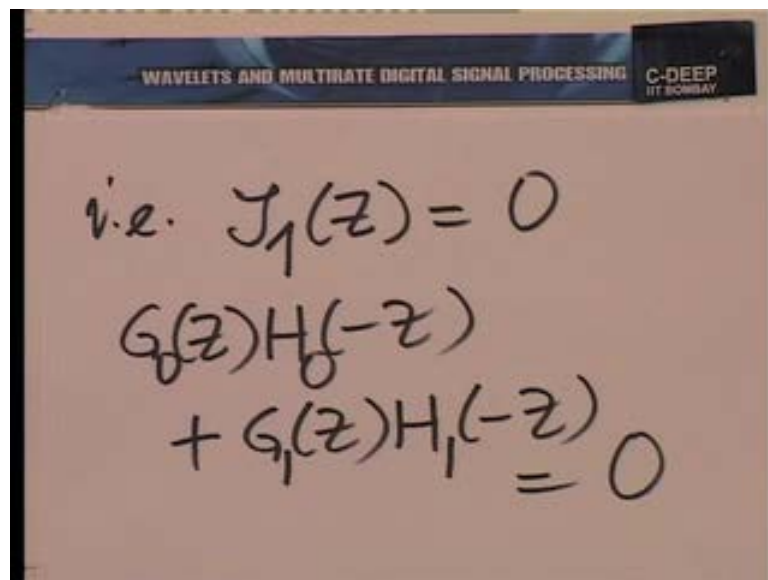 WAVELETS AND MULTIRATE DIGITAL SIGNAL PROCESSING
C-DEEP
IIT BOMBAY
i.e. J₁(Z) = 0
G₀(Z)H₀(-Z)
+ G₁(Z)H₁(-Z)
= 0